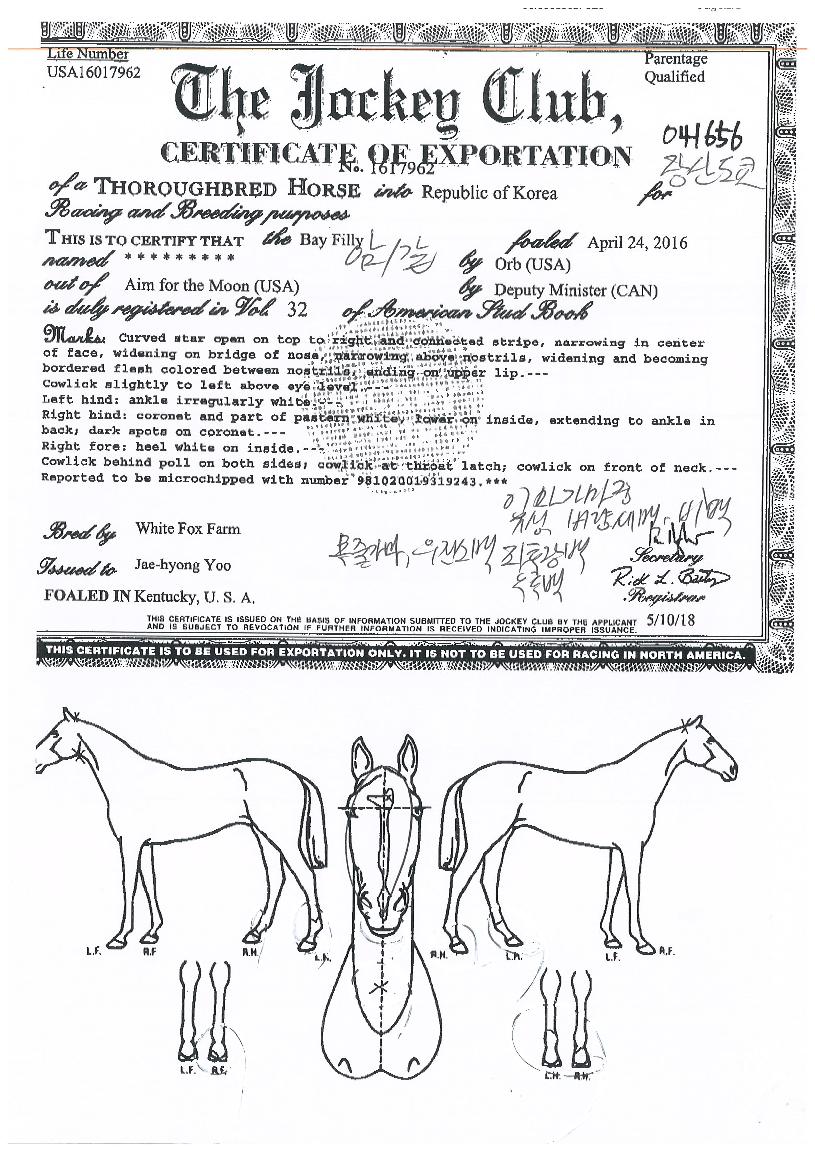 Life Number
USA16017962
Parentage
Qualified
The Jockey Club,
CERTIFICATE OF EXPORTATION
No. 1617962
041656
of a THOROUGHBRED HORSE into Republic of Korea for
Racing and Breeding purposes
THIS IS TO CERTIFY THAT the Bay Filly foaled April 24, 2016
named * * * * * * * * * by Orb (USA)
out of Aim for the Moon (USA) by Deputy Minister (CAN)
is duly registered in Vol. 32 of American Stud Book
Marks: Curved star open on top to right and connected stripe, narrowing in center
of face, widening on bridge of nose, narrowing above nostrils, widening and becoming
bordered flesh colored between nostrils, ending on upper lip.---
Cowlick slightly to left above eye level.---
Left hind: ankle irregularly white.---
Right hind: coronet and part of pastern white, lower on inside, extending to ankle in
back; dark spots on coronet.---
Right fore: heel white on inside.---
Cowlick behind poll on both sides; cowlick at throat latch; cowlick on front of neck.---
Reported to be microchipped with number 981020019319243.***
Bred by White Fox Farm
Secretary
Issued to Jae-hyong Yoo
Registrar
FOALED IN Kentucky, U. S. A.
THIS CERTIFICATE IS ISSUED ON THE BASIS OF INFORMATION SUBMITTED TO THE JOCKEY CLUB BY THE APPLICANT
AND IS SUBJECT TO REVOCATION IF FURTHER INFORMATION IS RECEIVED INDICATING IMPROPER ISSUANCE.
5/10/18
THIS CERTIFICATE IS TO BE USED FOR EXPORTATION ONLY. IT IS NOT TO BE USED FOR RACING IN NORTH AMERICA.
L.F. R.F. R.H. L.H. R.H. L.H. L.F. R.F.
L.F. R.F. L.H. R.H.